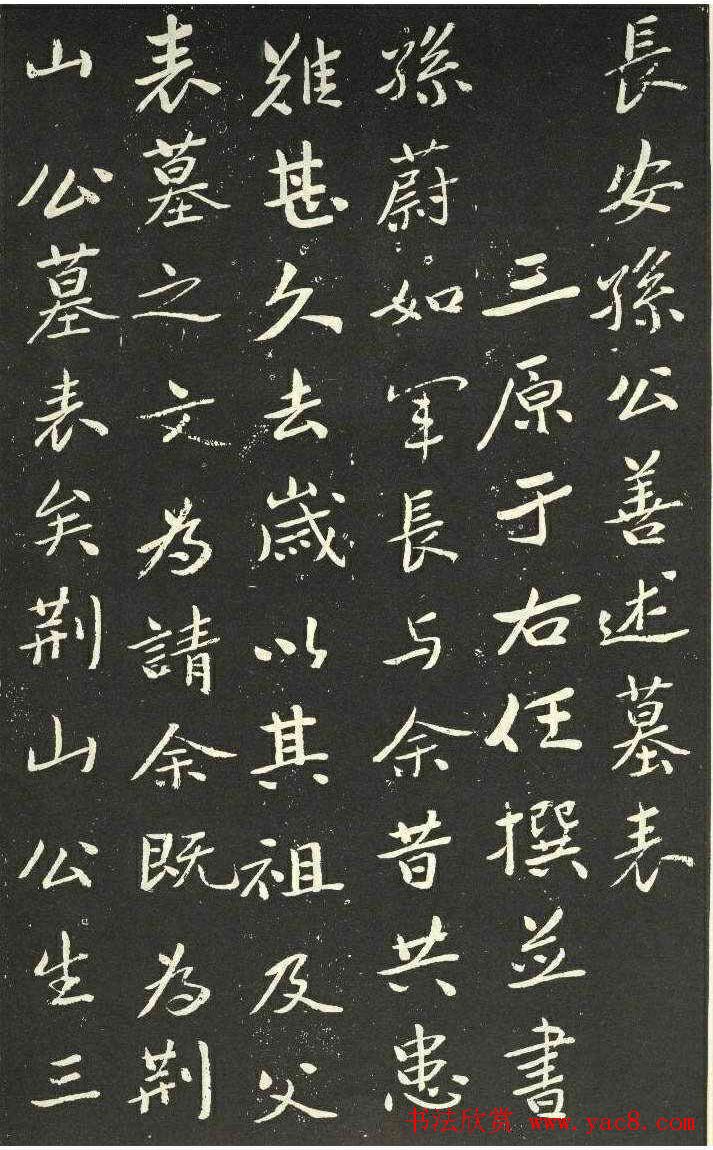 長安孫公善述墓表
三原于右任撰並書
孫蔚如軍長与余昔共患
難甚久去歲以其祖及父
表墓之文為請余既為荆
山公墓表矣荆山公生三
书法欣赏 www.yac8.com